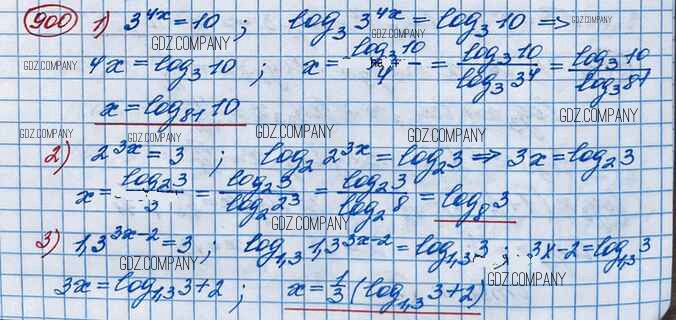 900 1) 3^{4x} = 10 ; log_3 3^{4x} = log_3 10 =>
GDZ.COMPANY GDZ.COMPANY
GDZ.COMPANY 4x = log_3 10 ; x = \frac{log_3 10}{4} = \frac{log_3 10}{log_3 3^4} = \frac{log_3 10}{log_3 81} GDZ.COMPANY
x = log_{81} 10
GDZ.COMPANY GDZ.COMPANY GDZ.COMPANY GDZ.COMPANY
2) 2^{3x} = 3 ; log_2 2^{3x} = log_2 3 => 3x = log_2 3
x = \frac{log_2 3}{3} = \frac{log_2 3}{log_2 2^3} = \frac{log_2 3}{log_2 8} = log_8 3
GDZ.COMPANY GDZ.COMPANY
3) 1,3^{3x-2} = 3 ; log_{1,3} 1,3^{3x-2} = log_{1,3} 3 ; 3x-2 = log_{1,3} 3
GDZ.COMPANY GDZ.COMPANY GDZ.COMPANY
3x = log_{1,3} 3+2 ; x = \frac{1}{3} (log_{1,3} 3+2)